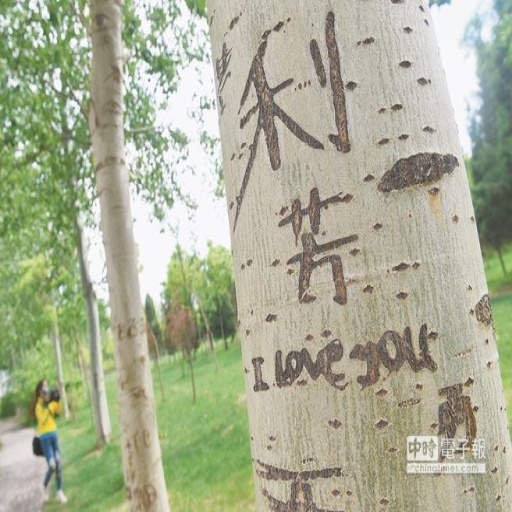 利
芳
I love you
中時電子報
chinatimes.com